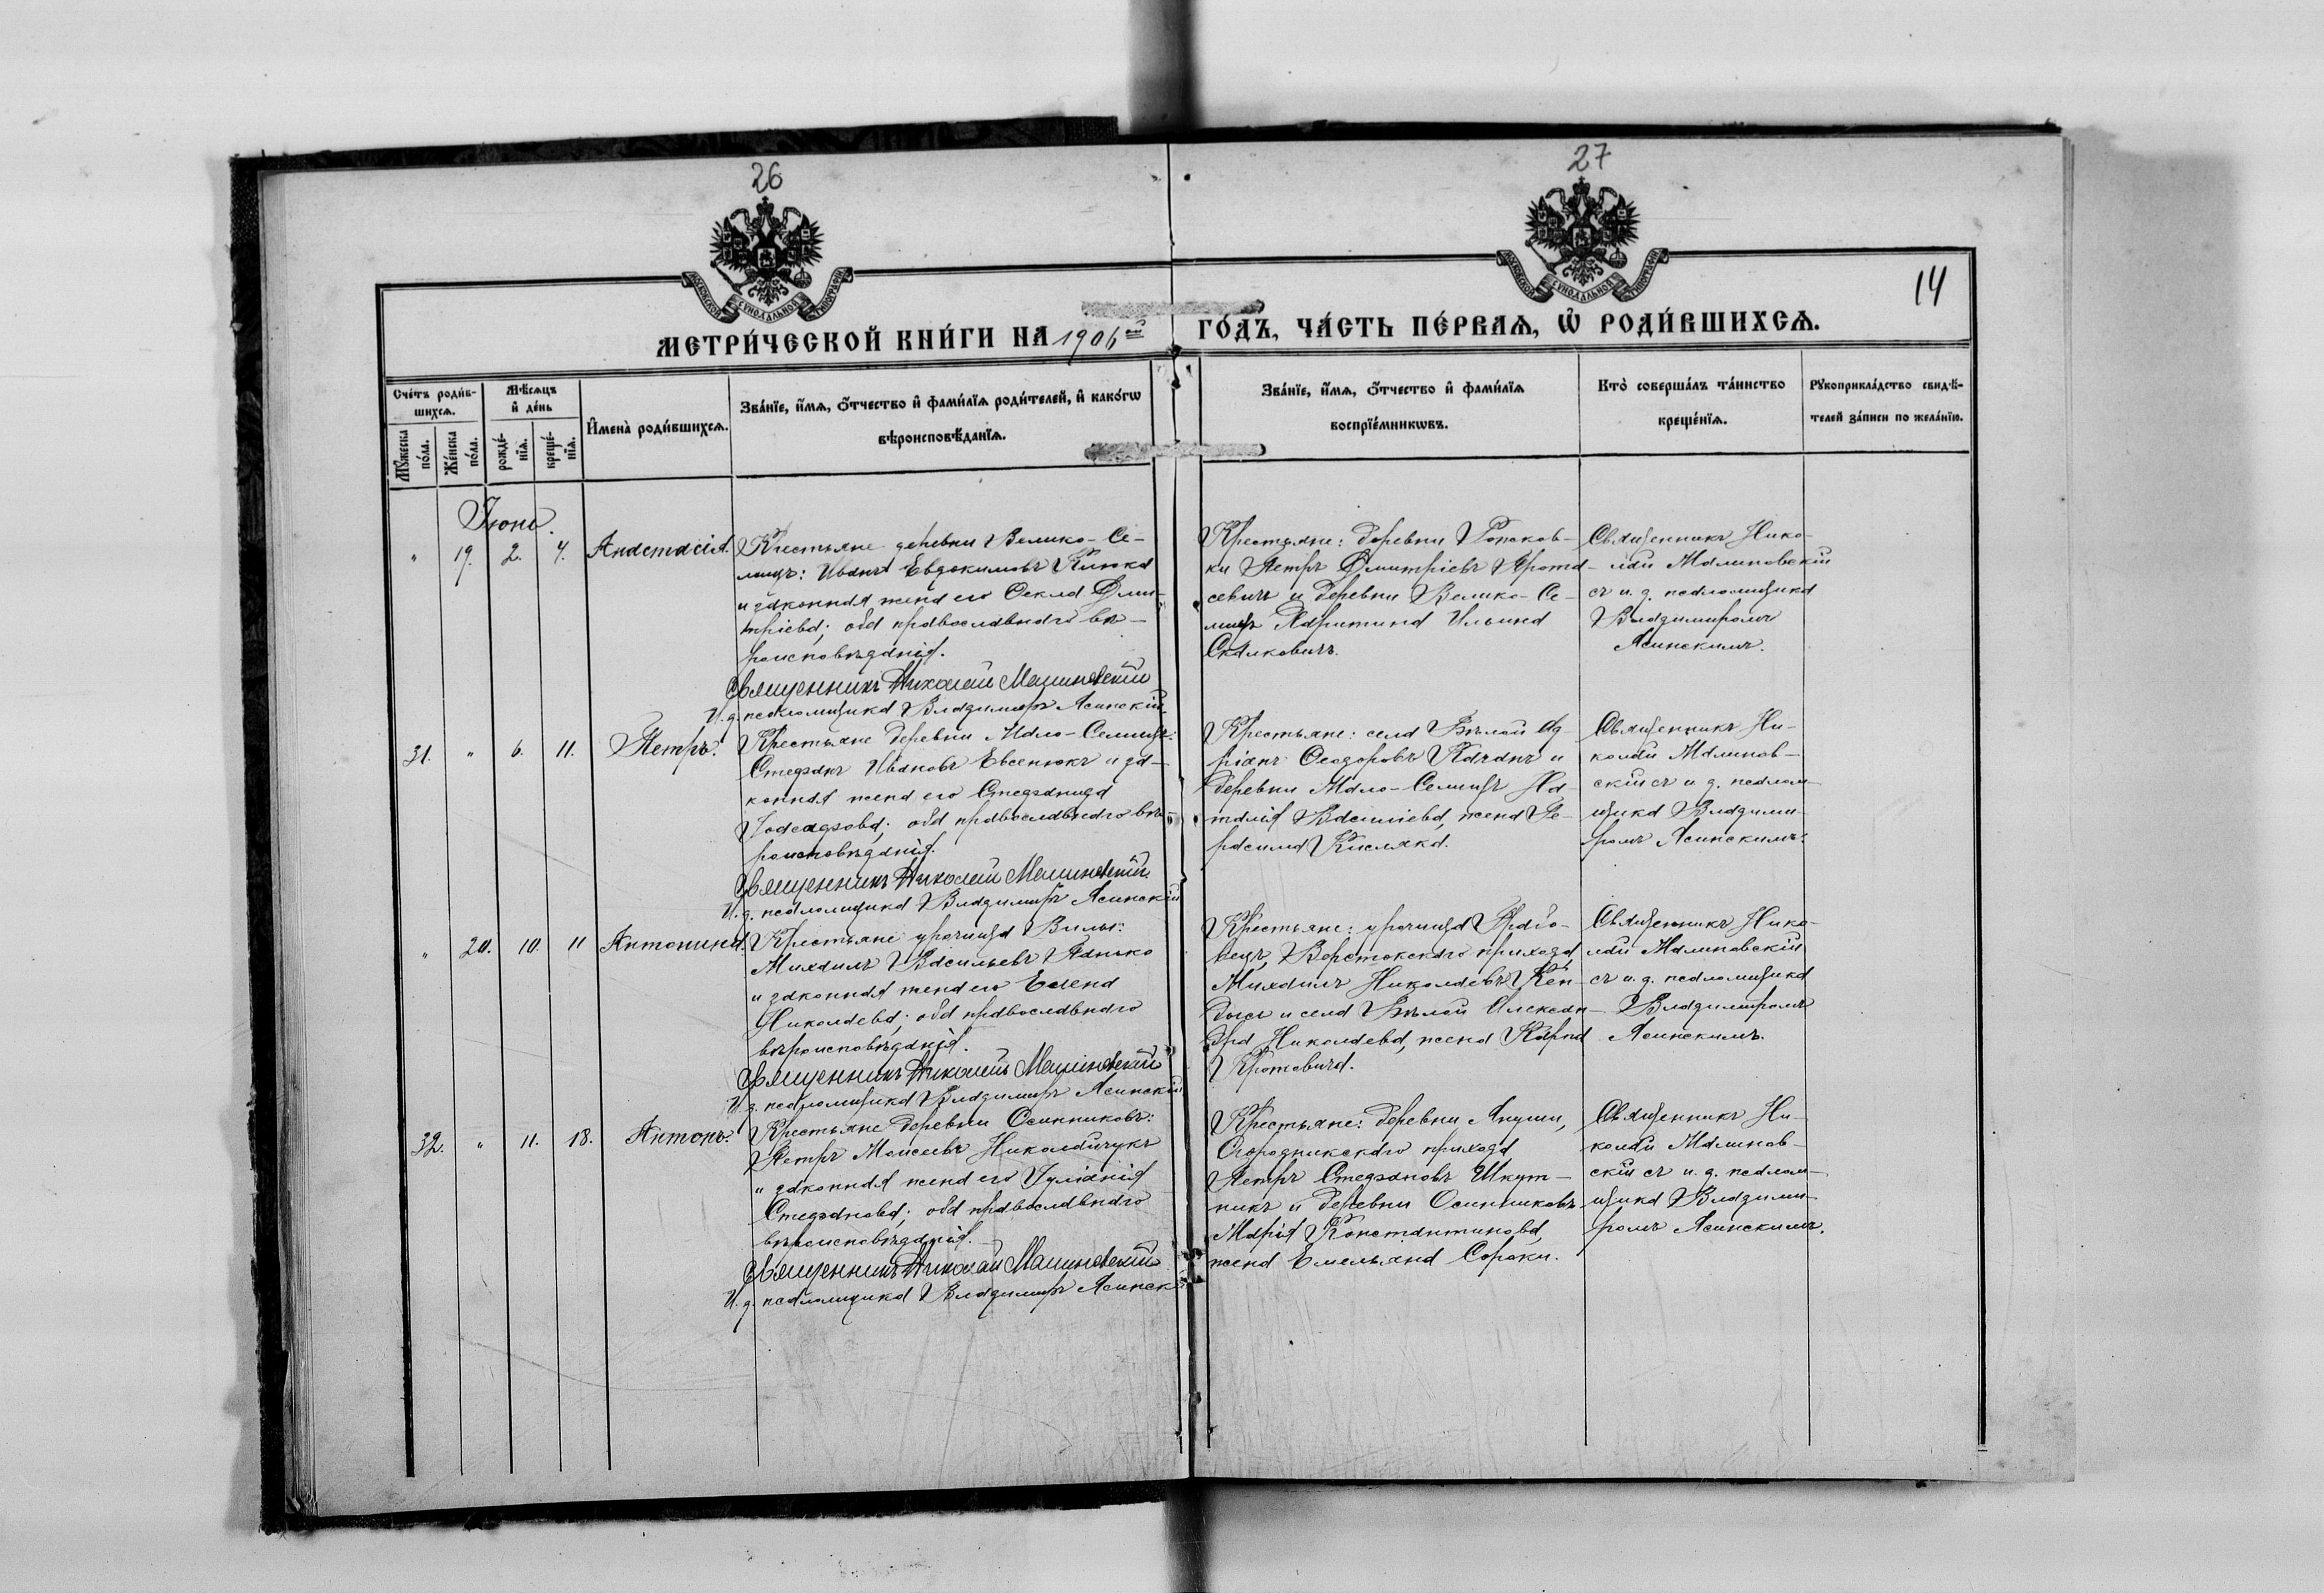 26
27
14
МЕТРИ́ЧЕСКОЙ КНИ́ГИ НА 1906й
ГО́ДЪ, ЧА́СТЬ ПЕ́РВАѦ, Ѡ РОДИ́ВШИХСѦ.
Сче́тъ роди́в-
шихсѧ.
Мꙋ́жеска
по́ла.
Же́нска
по́ла.
Мѣ́сѧцъ
и҆ де́нь
рожде́-
нїѧ.
креще́-
нїѧ.
И҆мена̀ роди́вшихсѧ.
Зва́нїе, и҆́мѧ, ѻ҆́тчество и҆ фами́лїѧ роди́телей, и҆ како́гѡ
вѣроисповѣ́данїѧ.
Зва́нїе, и҆́мѧ, ѻ҆́тчество и҆ фами́лїѧ
воспрїе́мникѡвъ.
Кто̀ соверша́лъ та́инство
креще́нїѧ.
Рꙋкоприкла́дство свидѣ́-
телей за́писи по жела́нїю.
Іюнь.
" 19. 2. 4. Анастасія.
Крестьяне деревни Велико-Се-
мицъ: Иванъ Евдокимовъ Клюка
и законная жена его Ѳекла Дми-
тріева; оба православнаго вѣ-
роисповѣданія.
Священникъ Николай Малиновскій
И. д. псаломщика Владимиръ Ясинскій.
Крестьяне: деревни
ки Петръ Димитріевъ
севичъ и деревни Велико-Се-
мицъ Ильина
Скалковичъ.
Священникъ Нико-
лай Малиновскій
съ и. д. псаломщика
Владимиромъ
Ясинскимъ.
31. " 6. 11. Петръ.
Крестьяне деревни Мало-Семицъ:
Стефанъ Ивановъ Евсенюкъ и за-
конная жена его Стефанида
вѣ-
роисповѣданія.
Священникъ Николай Малиновскій
И. д. псаломщика Владимиръ Ясинскій
Крестьяне: села Бѣлой Ад-
ріанъ Ѳеодоровъ и
деревни Мало-Семицъ На-
талія Василіева, жена Ге-
расима Кисляка.
Священникъ Ни-
колай Малинов-
скій съ и. д. псалом-
щика Владими-
ромъ Ясинскимъ.
" 20. 10. 11 Антонина.
Крестьяне урочища Вилы:
Михаилъ Васильевъ Панько
и законная жена его Елена
Николаева; оба православнаго
вѣроисповѣданія.
Священникъ Николай Малиновскій
И. д. псаломщика Владимиръ Ясинскій
Крестьяне: урочища Грабо-
вецъ, Верстокскаго прихода,
Михаилъ Николаевъ Кен-
дысь и села Бѣлой Алексан-
дра Николаева, жена Карпа
Кротовича.
Священникъ Нико-
лай Малиновскій
съ и. д. псаломщика
Владимиромъ
Ясинскимъ.
32. " 11. 18. Антонъ.
Крестьяне деревни Осинниковъ:
Петръ Моисеевъ Николайчукъ
и законная жена его Іуліанія
Стефанова; оба православнаго
вѣроисповѣданія.
Священникъ Николай Малиновскій
И. д. псаломщика Владимиръ Ясинскій
Крестьяне: деревни Януши,
Огородникскаго прихода
Петръ Стефановъ Шкут-
никъ и деревни Осинниковъ
Марія Константинова,
жена Емельяна Сороки.
Священникъ Ни-
колай Малинов-
скій съ и. д. псалом-
щика Владими-
ромъ Ясинскимъ.